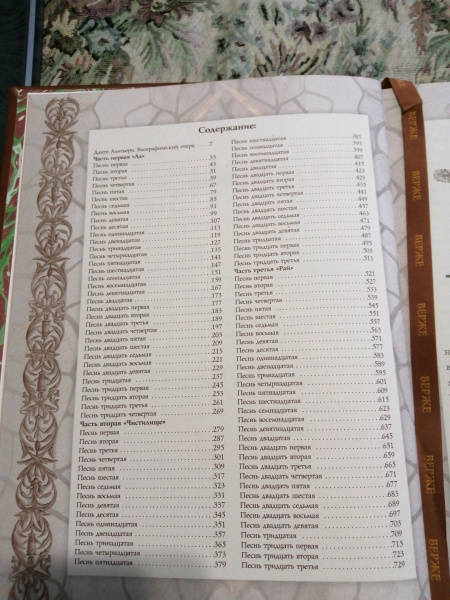 Содержание:
Данте Алигьери. Биографический очерк 7
Часть первая «Ад»
Песнь первая 35
Песнь вторая 43
Песнь третья 51
Песнь четвертая 59
Песнь пятая 67
Песнь шестая 79
Песнь седьмая 85
Песнь восьмая 91
Песнь девятая 99
Песнь десятая 107
Песнь одиннадцатая 113
Песнь двенадцатая 119
Песнь тринадцатая 127
Песнь четырнадцатая 135
Песнь пятнадцатая 141
Песнь шестнадцатая 147
Песнь семнадцатая 151
Песнь восемнадцатая 159
Песнь девятнадцатая 167
Песнь двадцатая 173
Песнь двадцать первая 177
Песнь двадцать вторая 183
Песнь двадцать третья 189
Песнь двадцать четвертая 197
Песнь двадцать пятая 203
Песнь двадцать шестая 209
Песнь двадцать седьмая 215
Песнь двадцать восьмая 221
Песнь двадцать девятая 229
Песнь тридцатая 237
Песнь тридцать первая 245
Песнь тридцать вторая 253
Песнь тридцать третья 261
Песнь тридцать четвертая 269
Часть вторая «Чистилище»
Песнь первая 279
Песнь вторая 287
Песнь третья 295
Песнь четвертая 301
Песнь пятая 309
Песнь шестая 317
Песнь седьмая 323
Песнь восьмая 331
Песнь девятая 337
Песнь десятая 345
Песнь одиннадцатая 351
Песнь двенадцатая 357
Песнь тринадцатая 365
Песнь четырнадцатая 373
Песнь пятнадцатая 379
Песнь шестнадцатая 385
Песнь семнадцатая 391
Песнь восемнадцатая 399
Песнь девятнадцатая 407
Песнь двадцатая 413
Песнь двадцать первая 421
Песнь двадцать вторая 429
Песнь двадцать третья 435
Песнь двадцать четвертая 441
Песнь двадцать пятая 449
Песнь двадцать шестая 457
Песнь двадцать седьмая 463
Песнь двадцать восьмая 471
Песнь двадцать девятая 479
Песнь тридцатая 487
Песнь тридцать первая 495
Песнь тридцать вторая 503
Песнь тридцать третья 511
Часть третья «Рай»
Песнь первая 521
Песнь вторая 527
Песнь третья 533
Песнь четвертая 539
Песнь пятая 545
Песнь шестая 551
Песнь седьмая 557
Песнь восьмая 565
Песнь девятая 571
Песнь десятая 577
Песнь одиннадцатая 583
Песнь двенадцатая 589
Песнь тринадцатая 595
Песнь четырнадцатая 601
Песнь пятнадцатая 609
Песнь шестнадцатая 615
Песнь семнадцатая 623
Песнь восемнадцатая 629
Песнь девятнадцатая 637
Песнь двадцатая 645
Песнь двадцать первая 651
Песнь двадцать вторая 659
Песнь двадцать третья 665
Песнь двадцать четвертая 671
Песнь двадцать пятая 677
Песнь двадцать шестая 683
Песнь двадцать седьмая 689
Песнь двадцать восьмая 697
Песнь двадцать девятая 703
Песнь тридцатая 709
Песнь тридцать первая 715
Песнь тридцать вторая 723
Песнь тридцать третья 729
ВЕРЖЕ
ВЕРЖЕ
ВЕРЖЕ
ВЕРЖЕ
ВЕРЖЕ
ВЕРЖЕ
ВЕРЖЕ